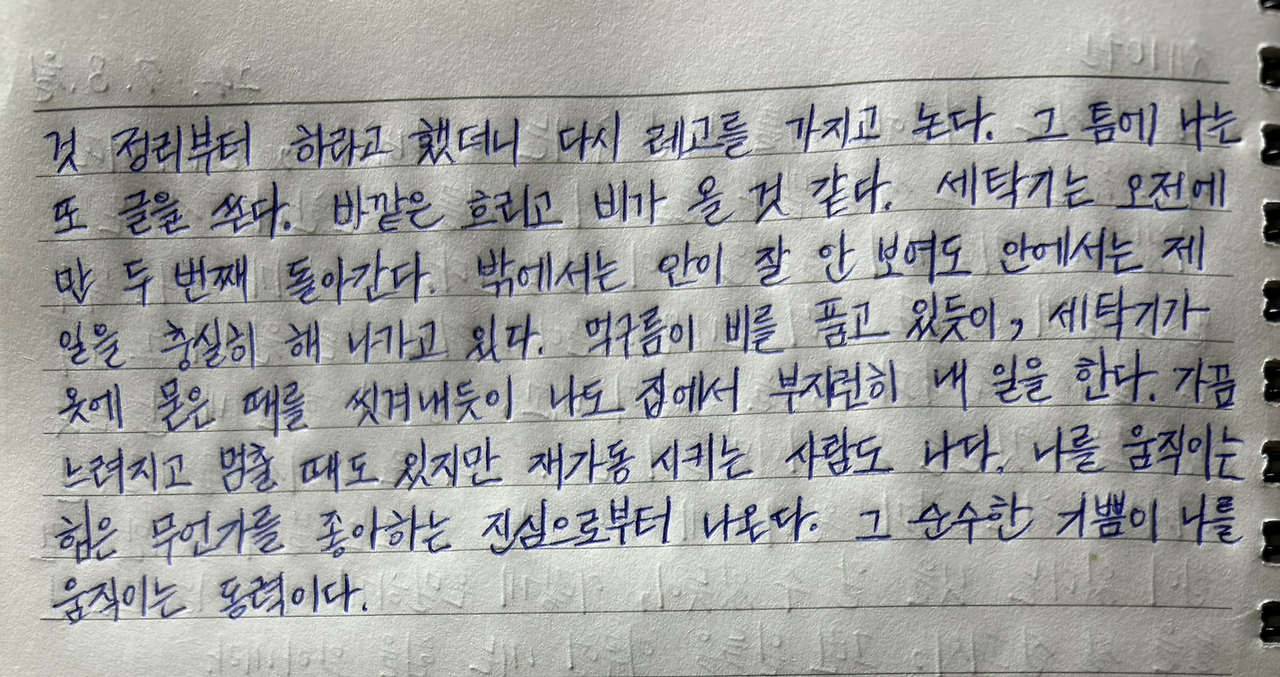 것 정리부터 하라고 했더니 다시 레고를 가지고 논다. 그 틈에 나는
또 글을 쓴다. 바깥은 흐리고 비가 올 것 같다. 세탁기는 오전에
만 두 번째 돌아간다. 밖에서는 안이 잘 안 보여도 안에서는 제
일을 충실히 해 나가고 있다. 먹구름이 비를 품고 있듯이, 세탁기가
옷에 묻은 때를 씻겨내듯이 나도 집에서 부지런히 내 일을 한다. 가끔
느려지고 멈출 때도 있지만 재가동 시키는 사람도 나다. 나를 움직이는
힘은 무언가를 좋아하는 진심으로부터 나온다. 그 순수한 기쁨이 나를
움직이는 동력이다.